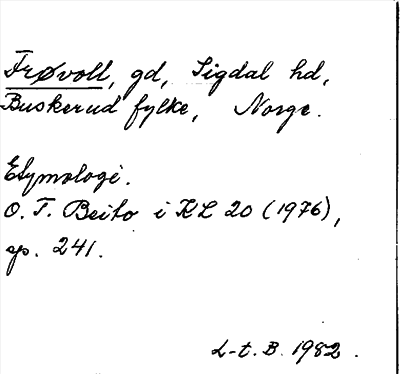 Frøvoll, gd, Sigdal hd,
Buskerud fylke, Norge.
Etymologi.
O. T. Beito i KL 20 (1976),
sp. 241.
L-t. B. 1982.